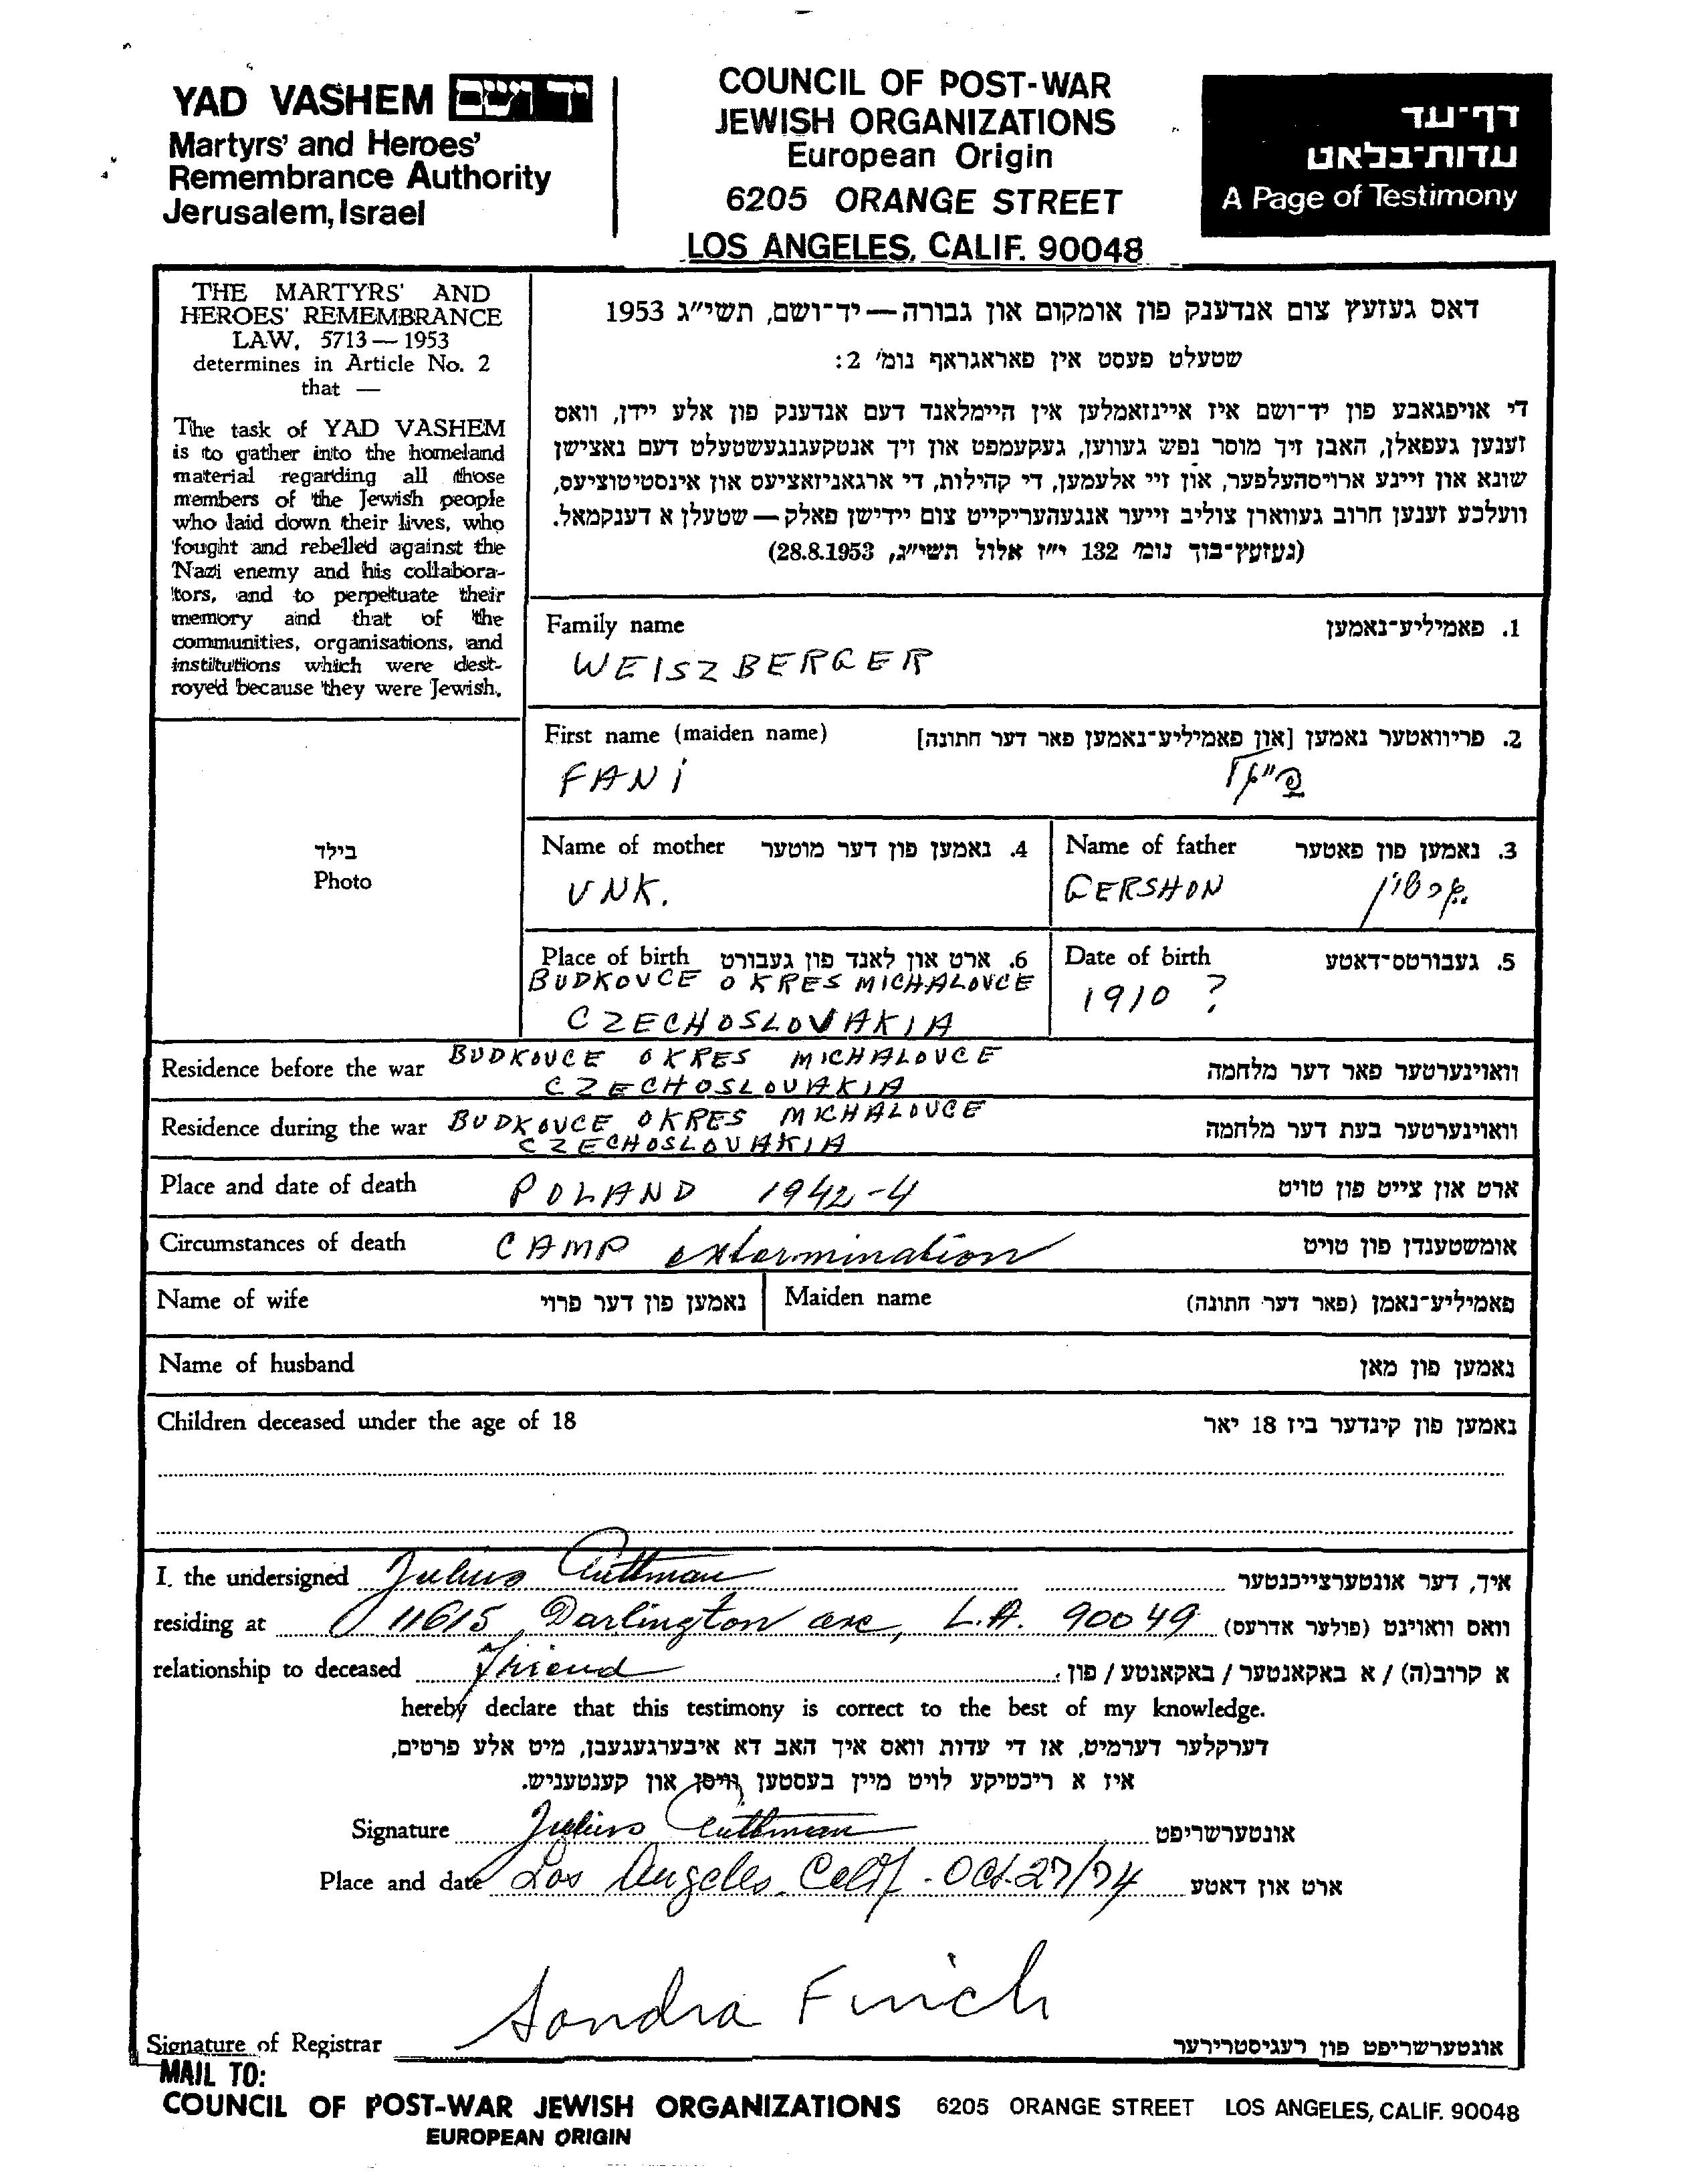 YAD VASHEM יד ושם
Martyrs' and Heroes'
Remembrance Authority
Jerusalem, Israel
COUNCIL OF POST-WAR
JEWISH ORGANIZATIONS
European Origin
6205 ORANGE STREET
LOS ANGELES, CALIF. 90048
דף־עד
עדות־בלאט
A Page of Testimony
THE MARTYRS' AND
HEROES' REMEMBRANCE
LAW, 5713 — 1953
determines in Article No. 2
that —
The task of YAD VASHEM
is to gather into the homeland
material regarding all those
members of the Jewish people
who laid down their lives, who
fought and rebelled against the
Nazi enemy and his collabora-
tors, and to perpetuate their
memory and that of the
communities, organisations, and
institutions which were dest-
royed because they were Jewish.
דאס געזעץ צום אנדענק פון אומקום און גבורה — יד־ושם, תשי״ג 1953
שטעלט פעסט אין פאראגראף נומ׳ 2:
די אויפגאבע פון יד־ושם איז איינזאמלען אין היימלאנד דעם אנדענק פון אלע יידן, וואס
זענען געפאלן, האבן זיך מוסר נפש געווען, געקעמפט און זיך אנטקעגנגעשטעלט דעם נאצישן
שונא און זיינע ארויסהעלפער, און זיי אלעמען, די קהילות, די ארגאניזאציעס און אינסטיטוציעס,
וועלכע זענען חרוב געווארן צוליב זייער אנגעהעריקייט צום יידישן פאלק — שטעלן א דענקמאל.
(געזעץ־בוך נומ׳ 132 י״ז אלול תשי״ג, 28.8.1953)
Family name 1. פאמיליע־נאמען
WEISZBERGER
First name (maiden name) 2. פריוואטער נאמען [און פאמיליע־נאמען פאר דער חתונה]
FANI
Name of mother 4. נאמען פון דער מוטער
UNK.
Name of father 3. נאמען פון פאטער
GERSHON גרשון
Place of birth 6. ארט און לאנד פון געבורט
BUDKOVCE OKRES MICHALOVCE
CZECHOSLOVAKIA
Date of birth 5. געבורטס־דאטע
1910 ?
בילד
Photo
Residence before the war BUDKOVCE OKRES MICHALOVCE וואוינערטער פאר דער מלחמה
CZECHOSLOVAKIA
Residence during the war BUDKOVCE OKRES MICHALOVCE וואוינערטער בעת דער מלחמה
CZECHOSLOVAKIA
Place and date of death POLAND 1942-4 ארט און צייט פון טויט
Circumstances of death CAMP extermination אומשטענדן פון טויט
Name of wife נאמען פון דער פרוי Maiden name פאמיליע־נאמן (פאר דער חתונה)
Name of husband נאמען פון מאן
Children deceased under the age of 18 נאמען פון קינדער ביז 18 יאר
I. the undersigned Julius Guttman איך, דער אונטערצייכנטער
residing at 11615 Darlington ave, L.A. 90049 וואס וואוינט (פולער אדרעס)
relationship to deceased Friend א קרוב(ה) / א באקאנטער / באקאנטע / פון
hereby declare that this testimony is correct to the best of my knowledge.
דערקלער דערמיט, אז די עדות וואס איך האב דא איבערגעגעבן, מיט אלע פרטים,
איז א ריכטיקע לויט מיין בעסטען וויסן און קענטעניש.
Signature Julius Guttman אונטערשריפט
Place and date Los Angeles, Calif. Oct. 27/74 ארט און דאטע
Sondra Finch
Signature of Registrar אונטערשריפט פון רעגיסטרירער
MAIL TO:
COUNCIL OF POST-WAR JEWISH ORGANIZATIONS 6205 ORANGE STREET LOS ANGELES, CALIF. 90048
EUROPEAN ORIGIN